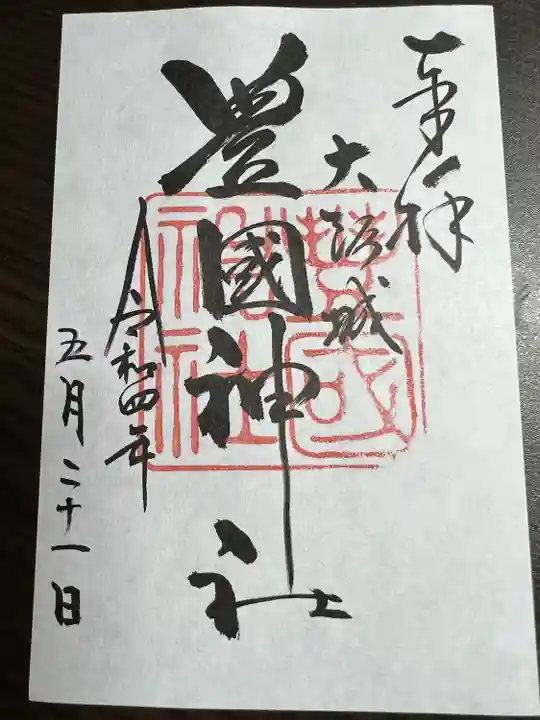 奉拝
大阪城
豊國神社
令和四年
五月二十一日
豊国神社